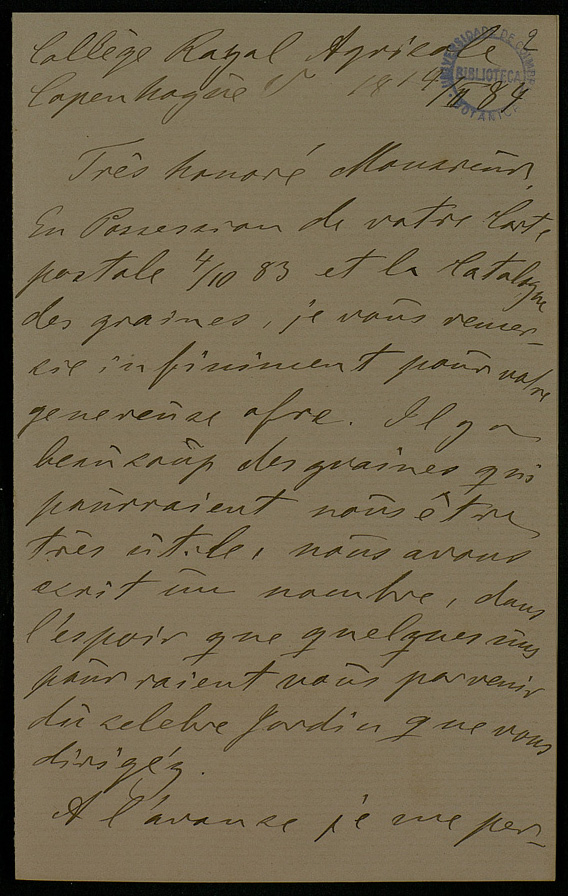 9
Collège Royal Agricole
Copenhague V 18 14/II 84
UNIVERSIDADE DE COIMBRA
BIBLIOTECA
BOTANICA
Très honoré Monsieur,
En Possession de votre Carte
postale 4/10 83 et le Catalogue
des graines, je vous remer-
cie infiniment pour votre
genereuse ofre. Il y a
beaucoup des graines qui
pourraient nous être
très utile, nous avons
ecrit un nombre, dans
l'espoir que quelques uns
pourraient nous parvenir
du celebre Jardin que vous
dirigéz.
A l'avance je me per-